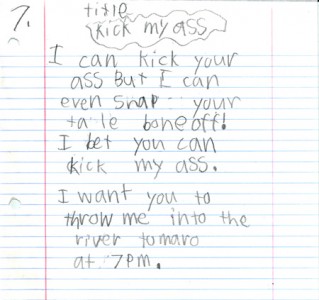 7.
title
kick my ass
I can kick your
ass But I can
even snap your
ta le bone off!
I bet you can
kick my ass.
I want you to
throw me into the
river tomaro
at 7pm.